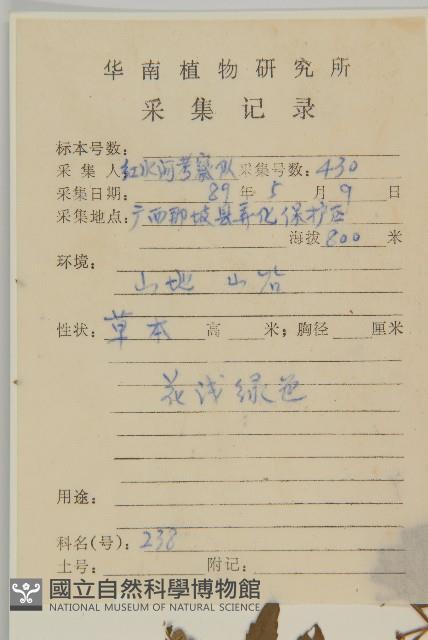 华南植物研究所
采集记录
标本号数：
采集人 红水河考察队 采集号数：430
采集日期： 89 年 5 月 9 日
采集地点：广西那坡县弄化保护区
海拔 800 米
环境：
山地 山谷
性状：草本 高 米；胸径 厘米
花浅绿色
用途：
科名(号)：238
土号： 附记：
國立自然科學博物館
NATIONAL MUSEUM OF NATURAL SCIENCE